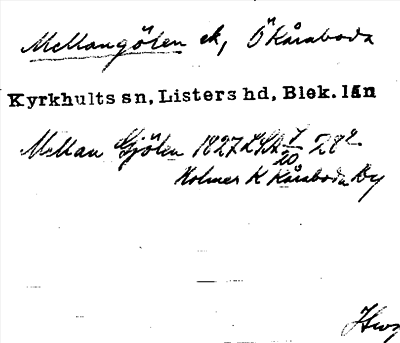 Mellangölen ek, Ö Kåraboda
Kyrkhults sn, Listers hd, Blek. län
Mellan Gjölen 1827 LSA 28
Holmer K Kåraboda By